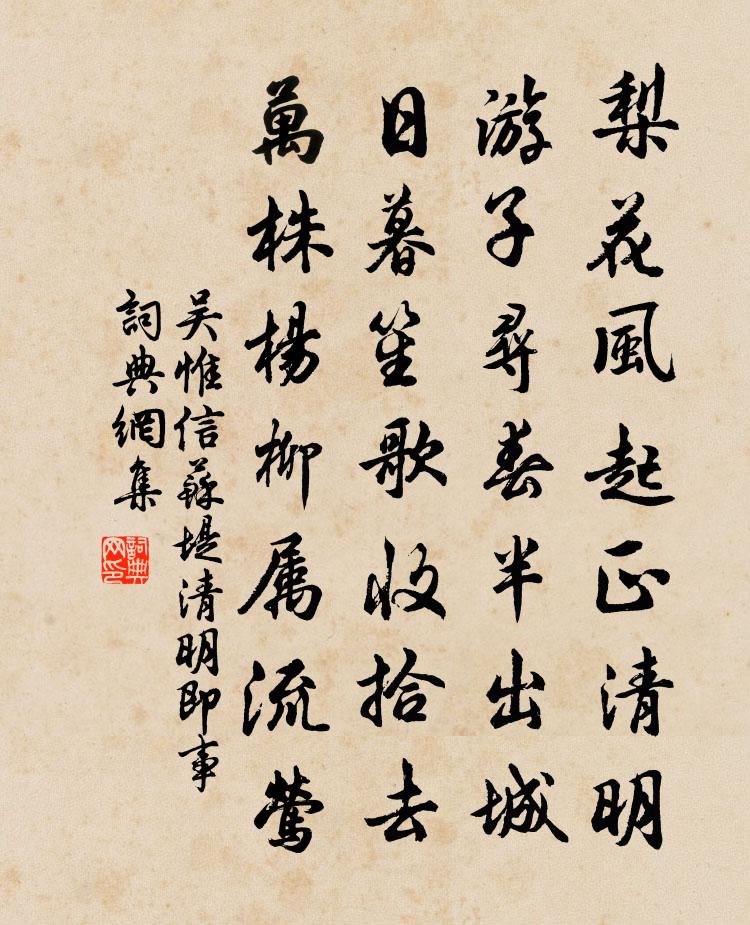 梨花風起正清明
游子尋春半出城
日暮笙歌收拾去
萬株楊柳属流鶯
吳惟信蘇堤清明即事
詞典網集
詞典
网印